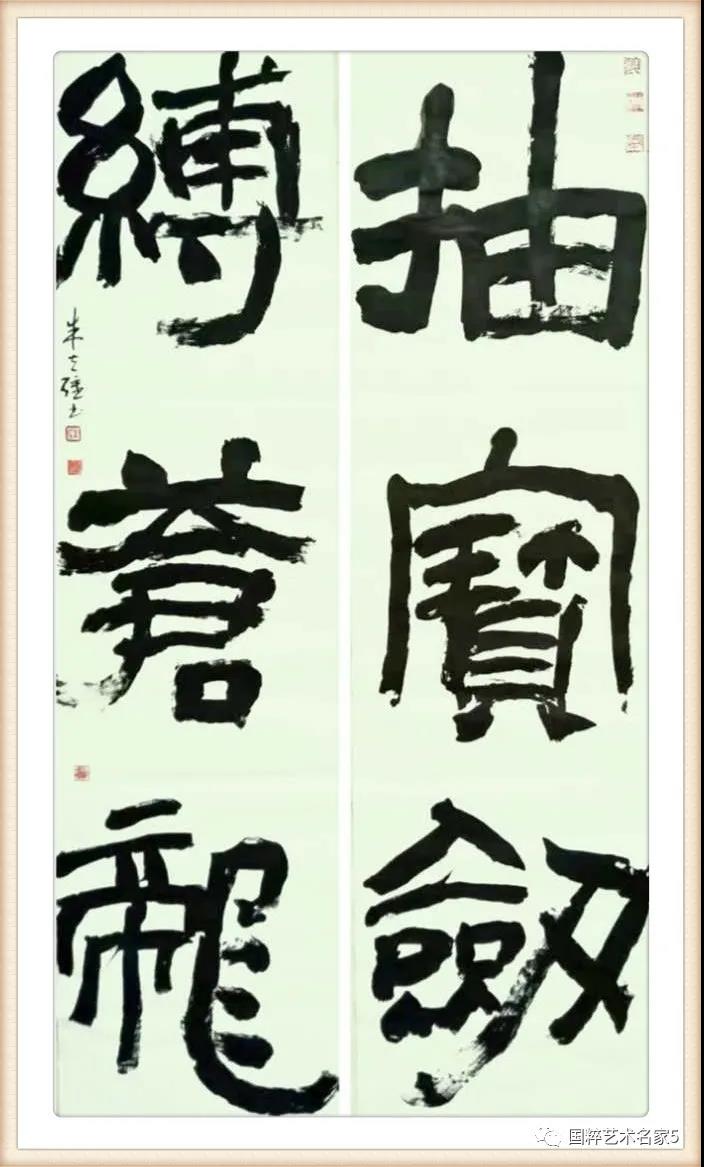 抽寶劔
縛蒼龍
朱之強书
国粹艺术名家5